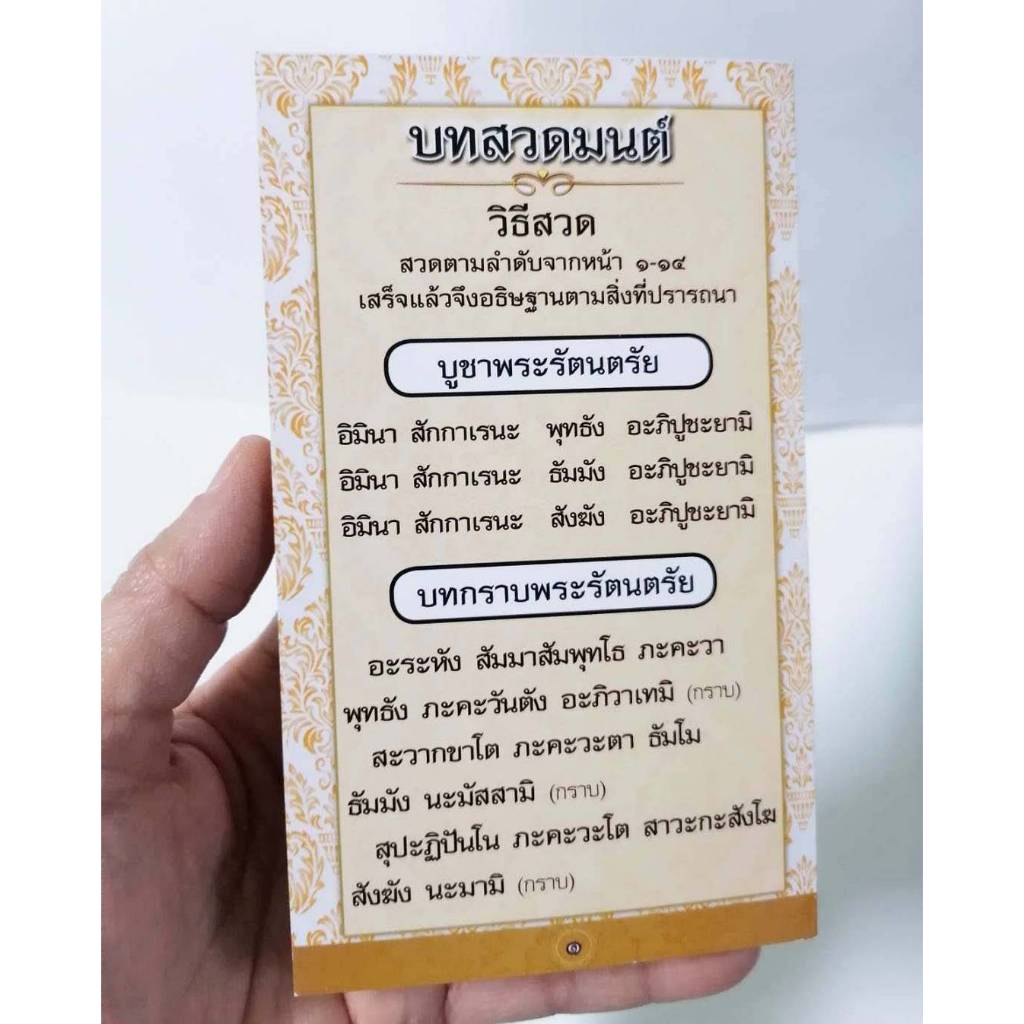 บทสวดมนต์
วิธีสวด
สวดตามลำดับจากหน้า ๑-๑๔
เสร็จแล้วจึงอธิษฐานตามสิ่งที่ปรารถนา
บูชาพระรัตนตรัย
อิมินา สักกาเรนะ พุทธัง อะภิปูชะยามิ
อิมินา สักกาเรนะ ธัมมัง อะภิปูชะยามิ
อิมินา สักกาเรนะ สังฆัง อะภิปูชะยามิ
บทกราบพระรัตนตรัย
อะระหัง สัมมาสัมพุทโธ ภะคะวา
พุทธัง ภะคะวันตัง อะภิวาเทมิ (กราบ)
สะวากขาโต ภะคะวะตา ธัมโม
ธัมมัง นะมัสสามิ (กราบ)
สุปะฏิปันโน ภะคะวะโต สาวะกะสังโฆ
สังฆัง นะมามิ (กราบ)
๑